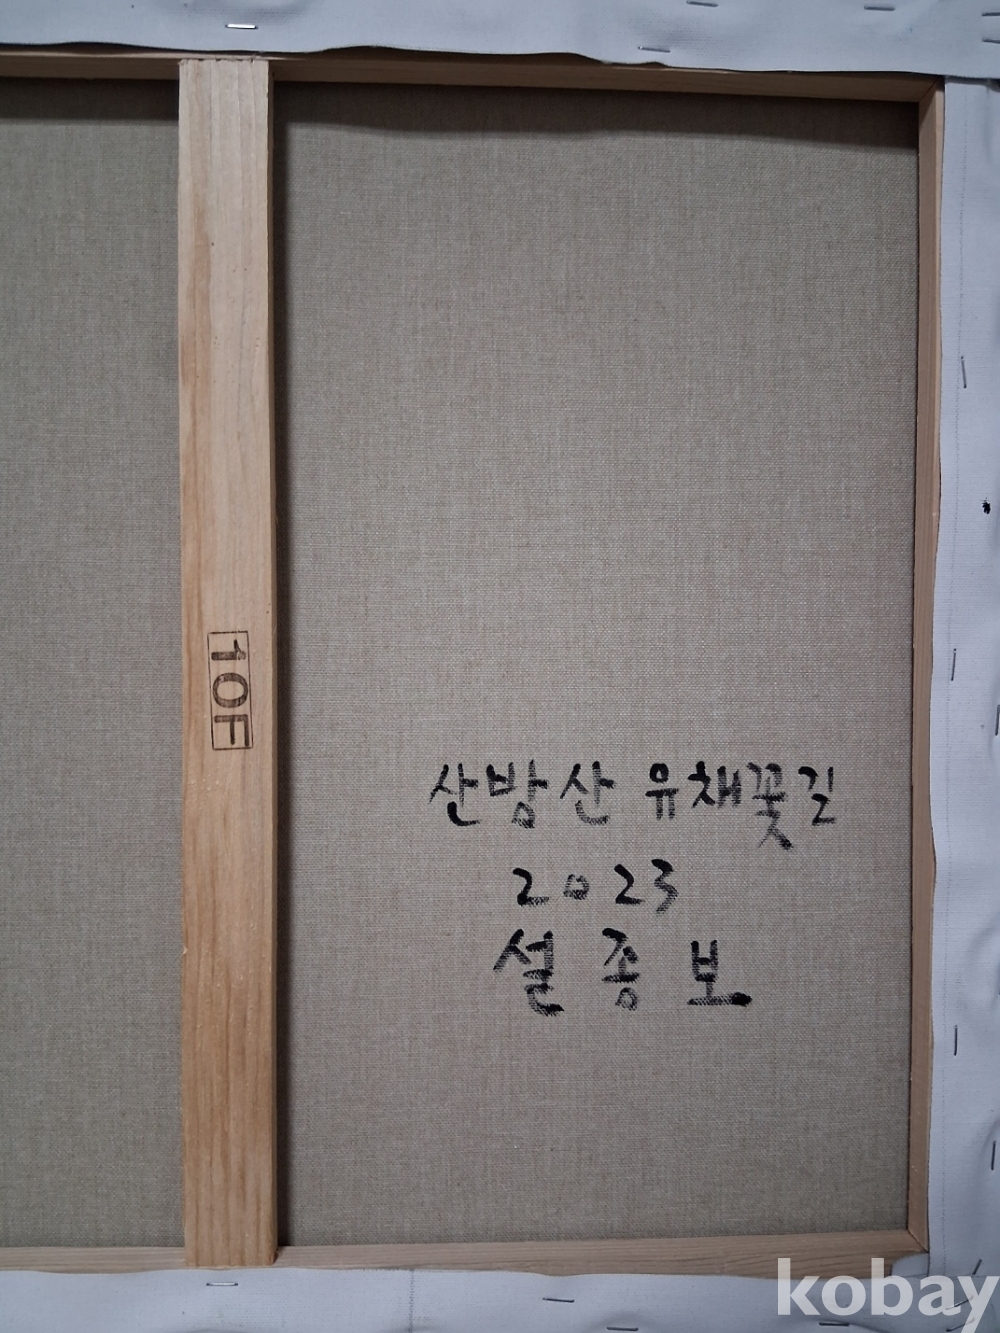 10F
산방산 유채꽃길
2023
설종보
kobay